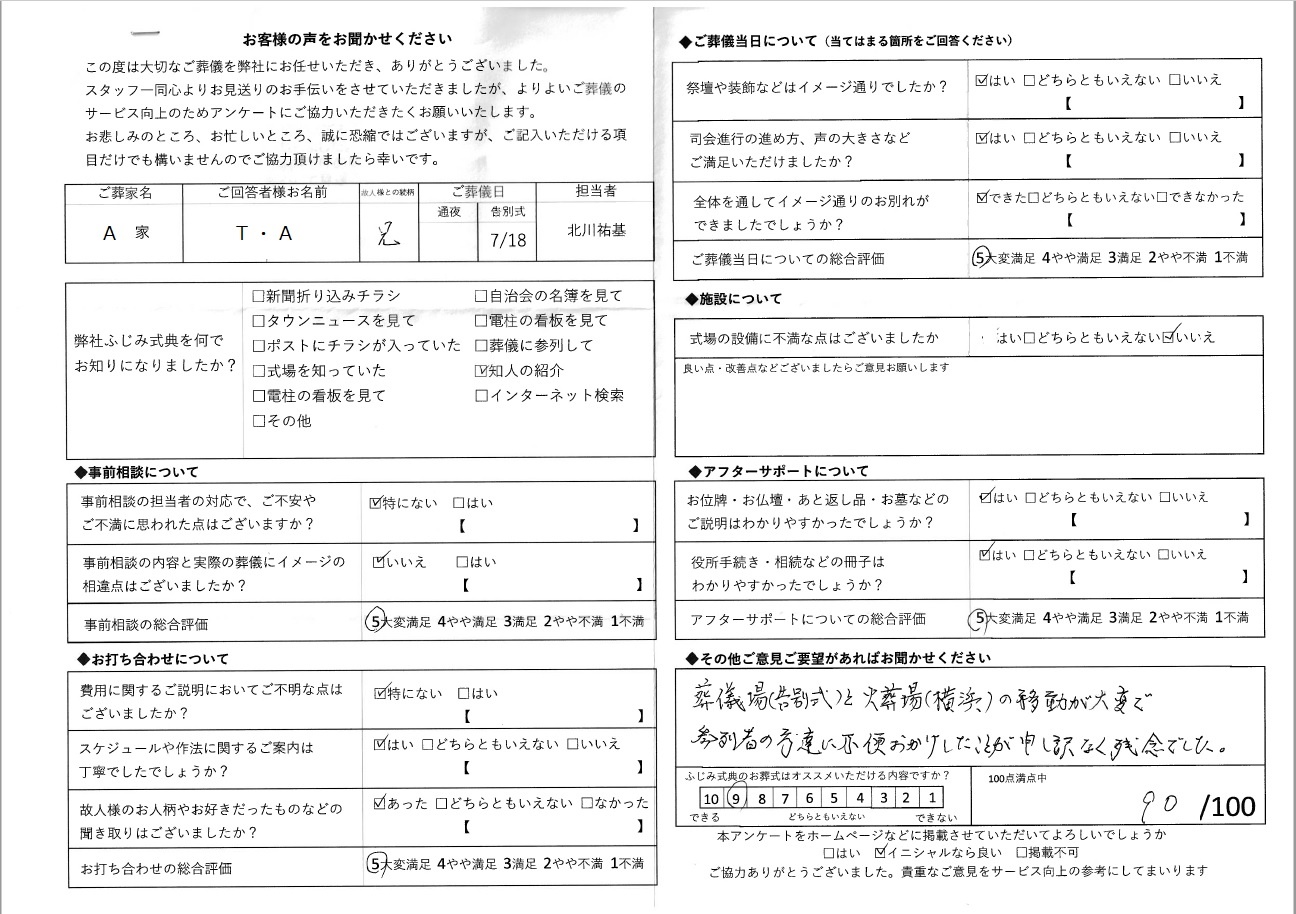 お客様の声をお聞かせください
この度は大切なご葬儀を弊社にお任せいただき、ありがとうございました。
スタッフ一同心よりお見送りのお手伝いをさせていただきましたが、よりよいご葬儀の
サービス向上のためアンケートにご協力いただきたくお願いいたします。
お悲しみのところ、お忙しいところ、誠に恐縮ではございますが、ご記入いただける項
目だけでも構いませんのでご協力頂けましたら幸いです。
ご葬家名 ご回答者様お名前 故人様との続柄 ご葬儀日 担当者
通夜 告別式
A 家 T・A 兄 7/18 北川祐基
弊社ふじみ式典を何で
お知りになりましたか？
☐新聞折り込みチラシ ☐自治会の名簿を見て
☐タウンニュースを見て ☐電柱の看板を見て
☐ポストにチラシが入っていた ☐葬儀に参列して
☐式場を知っていた ☑知人の紹介
☐電柱の看板を見て ☐インターネット検索
☐その他
◆事前相談について
事前相談の担当者の対応で、ご不安や
ご不満に思われた点はございますか？
☑特にない ☐はい
【 】
事前相談の内容と実際の葬儀にイメージの
相違点はございましたか？
☑いいえ ☐はい
【 】
事前相談の総合評価 5大変満足 4やや満足 3満足 2やや不満 1不満
◆お打ち合わせについて
費用に関するご説明においてご不明な点は
ございましたか？
☑特にない ☐はい
【 】
スケジュールや作法に関するご案内は
丁寧でしたでしょうか？
☑はい ☐どちらともいえない ☐いいえ
【 】
故人様のお人柄やお好きだったものなどの
聞き取りはございましたか？
☑あった ☐どちらともいえない ☐なかった
【 】
お打ち合わせの総合評価 5大変満足 4やや満足 3満足 2やや不満 1不満
◆ご葬儀当日について（当てはまる箇所をご回答ください）
祭壇や装飾などはイメージ通りでしたか？
☑はい ☐どちらともいえない ☐いいえ
【 】
司会進行の進め方、声の大きさなど
ご満足いただけましたか？
☑はい ☐どちらともいえない ☐いいえ
【 】
全体を通してイメージ通りのお別れが
できましたでしょうか？
☑できた☐どちらともいえない☐できなかった
【 】
ご葬儀当日についての総合評価 5大変満足 4やや満足 3満足 2やや不満 1不満
◆施設について
式場の設備に不満な点はございましたか はい☐どちらともいえない☑いいえ
良い点・改善点などございましたらご意見お願いします
◆アフターサポートについて
お位牌・お仏壇・あと返し品・お墓などの
ご説明はわかりやすかったでしょうか？
☑はい ☐どちらともいえない ☐いいえ
【 】
役所手続き・相続などの冊子は
わかりやすかったでしょうか？
☑はい ☐どちらともいえない ☐いいえ
【 】
アフターサポートについての総合評価 5大変満足 4やや満足 3満足 2やや不満 1不満
◆その他ご意見ご要望があればお聞かせください
葬儀場(告別式)と火葬場(横浜)の移動が大変で
参列者の方達に不便おかけしたことが申し訳なく残念でした。
ふじみ式典のお葬式はオススメいただける内容ですか？
10 9 8 7 6 5 4 3 2 1
できる どちらともいえない できない
100点満点中
90 /100
本アンケートをホームページなどに掲載させていただいてよろしいでしょうか
☐はい ☑イニシャルなら良い ☐掲載不可
ご協力ありがとうございました。貴重なご意見をサービス向上の参考にしてまいります